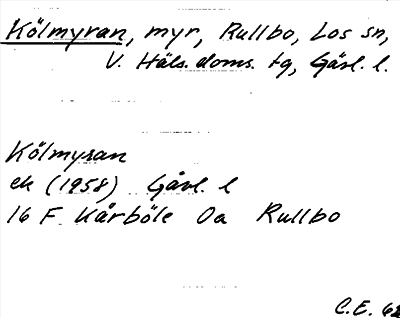 Kölmyran, myr, Rullbo, Los sn,
V. Häls. doms. tg, Gävl. l.
Kölmyran
ek (1958) Gävl. l
16 F Kårböle 0a Rullbo
C.E. 62